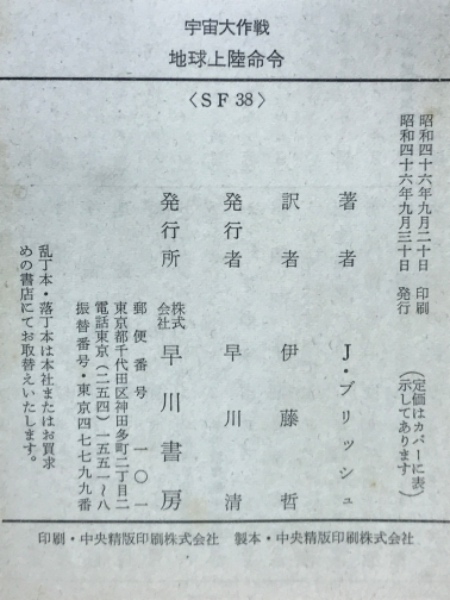 宇宙大作戦
地球上陸命令
〈SF38〉
昭和四十六年九月二十日　印刷
昭和四十六年九月三十日　発行
（定価はカバーに表
示してあります）
著者　J・ブリッシュ
訳者　伊藤哲
発行者　早川清
発行所　株式会社　早川書房
郵便番号　一〇一
東京都千代田区神田多町二丁目二
電話東京（二五四）一五五一〜八
振替番号・東京四七七九九番
乱丁本・落丁本は本社またはお買求
めの書店にてお取替えいたします。
印刷・中央精版印刷株式会社　製本・中央精版印刷株式会社